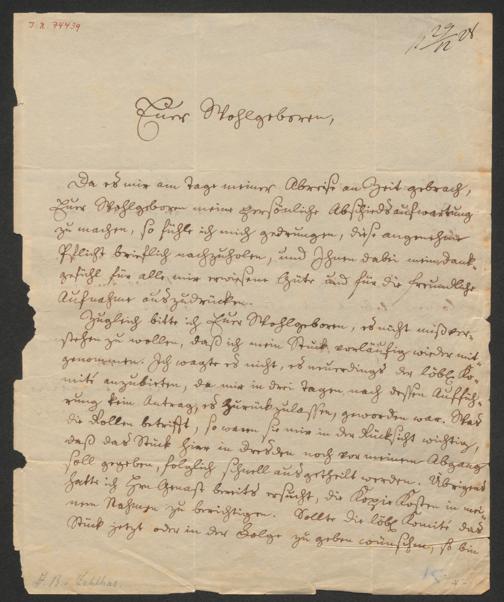 J. N. 74439
29/12 28
Euer Wohlgeboren,
Da es mir am Tage meiner Abreise an Zeit gebrach,
Euer Wohlgeboren meine persönliche Abschiedsaufwartung
zu machen, so fühle ich mich gedrungen, diese angenehme
Pflicht brieflich nachzuholen, und Ihnen dabei mein Dank-
gefühl für alle mir erwiesene Güte und für die freundliche
Aufnahme auszudrücken.
Zugleich bitte ich Euer Wohlgeboren, es nicht mißver-
stehen zu wollen, daß ich mein Stück vorläufig wieder mit-
genommen. Ich wagte es nicht, es neuerdings der löbl. Ko-
mité anzubieten, da mir in drei Tagen nach dessen Auffüh-
rung kein Antrag, es zurückzulassen, geworden war. Was
die Rollen betrifft, so waren sie mir in der Rücksicht wichtig,
daß das Stück hier in Dresden noch vor meinem Abgang
soll gegeben, folglich schnell ausgetheilt werden. Übrigens
hatte ich Hrn Genast bereits ersucht, die Kopie Kosten in mei-
nem Nahmen zu berichtigen. Sollte die löbl. Komité das
Stück jetzt oder in der Folge zu geben wünschen, so bin